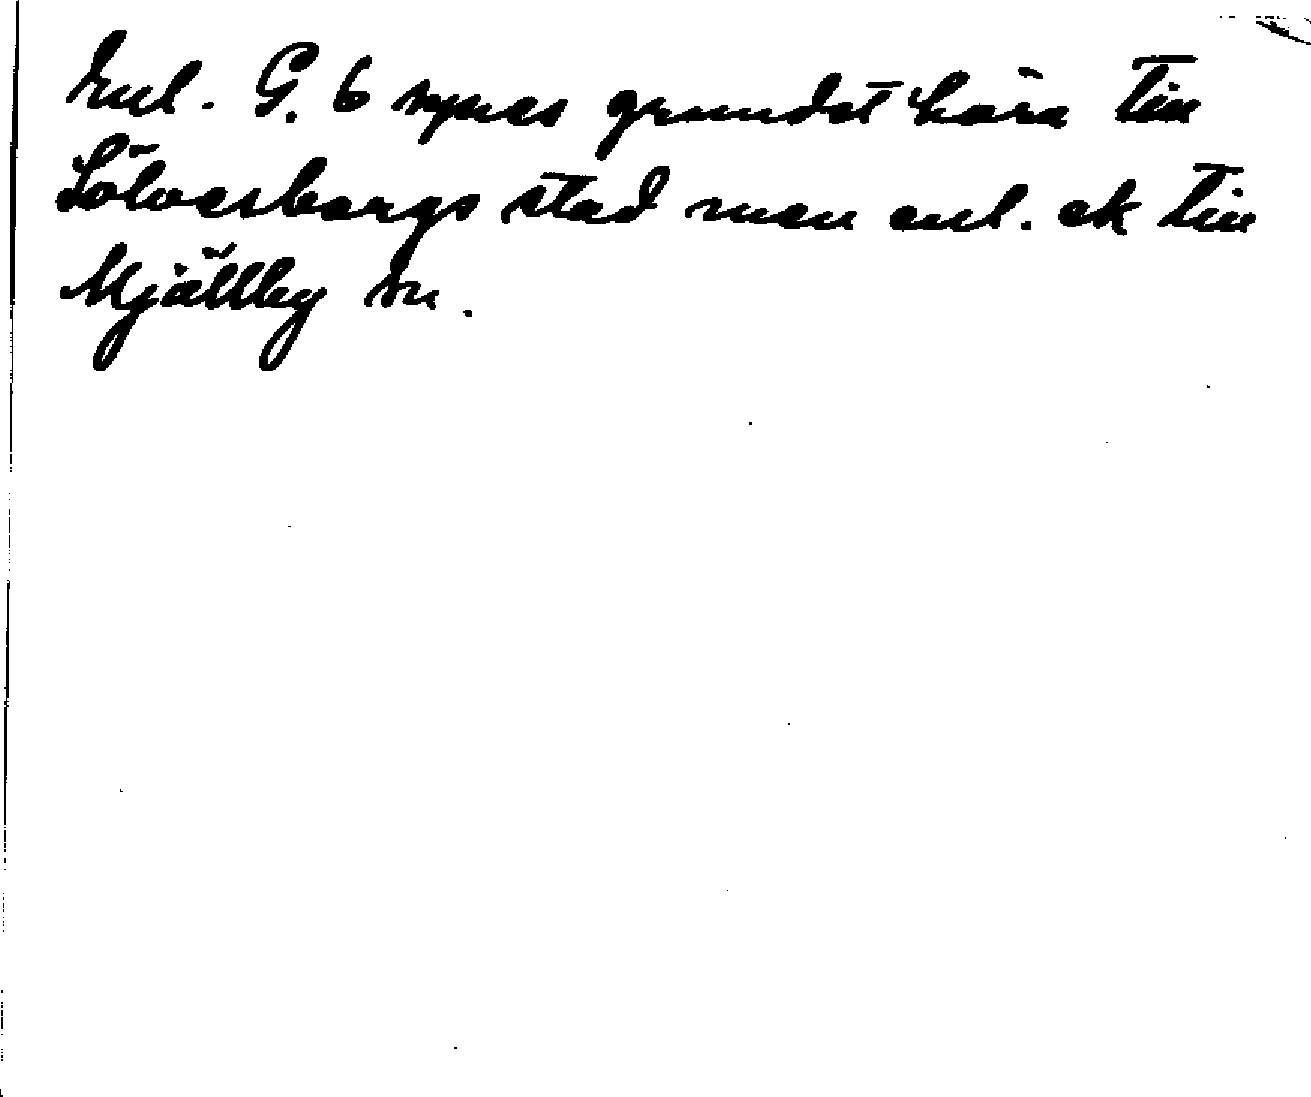 Enl. G. 6 synes grundet höra till
Sölvesborgs stad men enl. ek till
Mjällby sn.